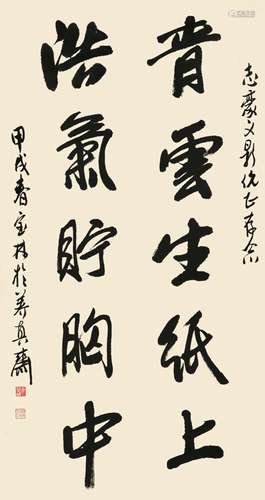 志豪文影伉正存念
青雲生紙上
浩氣貯胸中
甲戌春宝林於养真斋